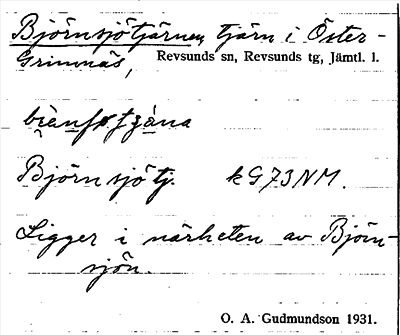 Björnsjötjärnen, tjärn i Öster-
Grimnäs, Revsunds sn, Revsunds tg, Jämtl. l.
Björnsjötj. kG73NM.
Ligger i närheten av Björn-
sjön.
O. A. Gudmundson 1931.